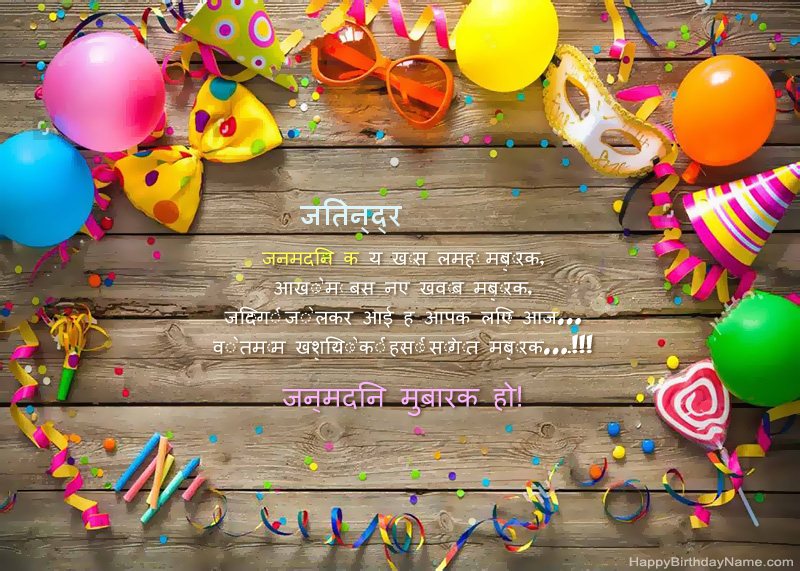 जतिन्द्र
जन्मदिन के ये ख़ास लम्हें मुबारक,
आँखों में बसे नए ख्वाब मुबारक,
जिंदगी जो लेकर आई है आपके लिए आज...
वो तमाम खुशियों की हंसीं सौगात मुबारक...!!!
जन्मदिन मुबारक हो!
HappyBirthdayName.com